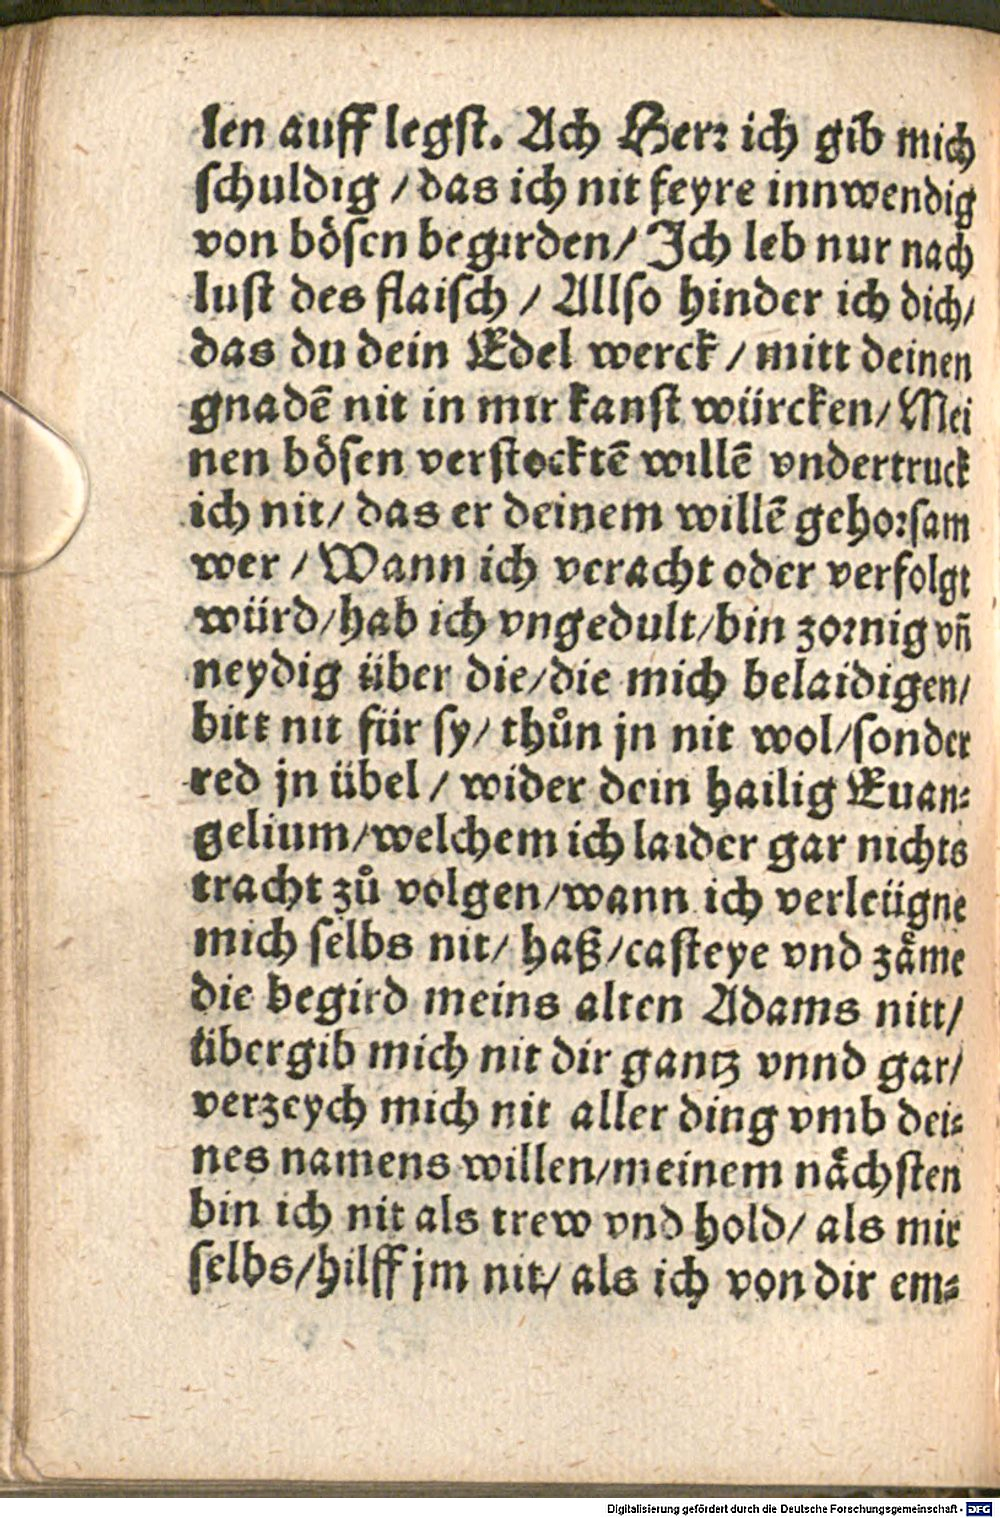 len auff legst. Ach Herꝛ ich gib mich
schuldig / das ich nit feyre innwendig
von boͤsen begirden / Ich leb nur nach
lust des flaisch / Allso hinder ich dich /
das du dein Edel werck / mitt deinen
gnadē nit in mir kanst würcken / Mei
nen boͤsen verstocktē willē vndertruck
ich nit / das er deinem willē gehoꝛsam
wer / Wann ich veracht oder verfolgt
würd / hab ich vngedult / bin zoꝛnig vñ
neydig über die / die mich belaidigen /
bitt nit für sy / thůn jn nit wol / sonder
red jn übel / wider dein hailig Euan⸗
gelium / welchem ich laider gar nichts
tracht zů volgen / wann ich verleügne
mich selbs nit / haß / casteye vnd zaͤme
die begird meins alten Adams nitt /
übergib mich nit dir gantz vnnd gar /
verzeych mich nit aller ding vmb dei⸗
nes namens willen / meinem naͤchsten
bin ich nit als trew vnd hold / als mir
selbs / hilff jm nit / als ich von dir em⸗
Digitalisierung gefördert durch die Deutsche Forschungsgemeinschaft - DFG